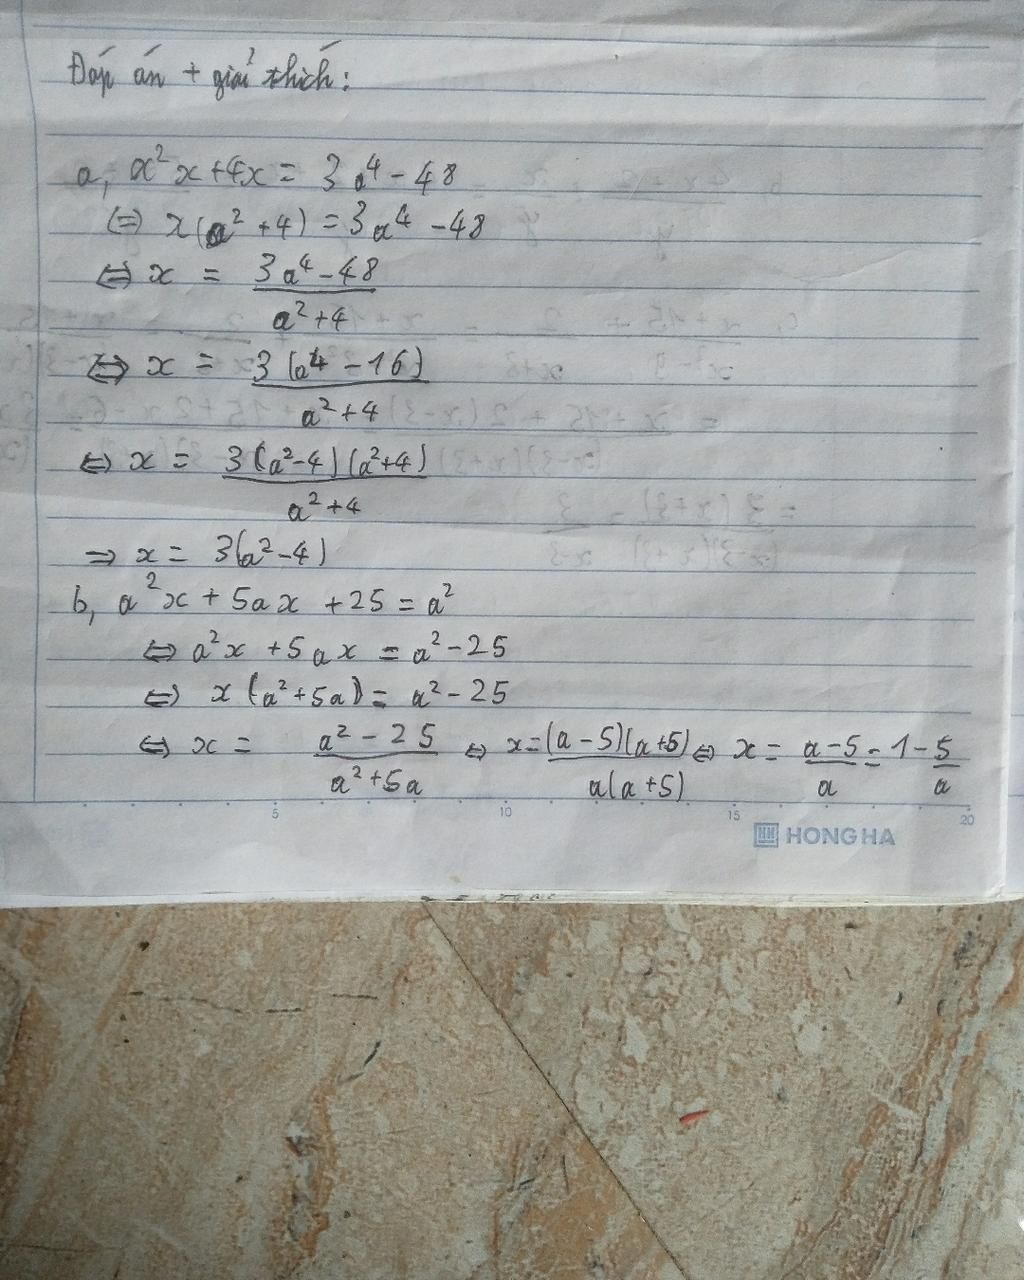 Đáp án + giải thích:
a, a² x + 4x = 3a⁴ - 48
(=) x(a² + 4) = 3a⁴ - 48
⇔ x = (3a⁴ - 48)/(a² + 4)
⇔ x = 3(a⁴ - 16)/(a² + 4)
⇔ x = 3(a² - 4)(a² + 4)/(a² + 4)
⇒ x = 3(a² - 4)
b, a²x + 5ax + 25 = a²
⇔ a²x + 5ax = a² - 25
⇔ x(a² + 5a) = a² - 25
⇔ x = (a² - 25)/(a² + 5a) ⇔ x = (a - 5)(a + 5)/a(a + 5) ⇔ x = (a - 5)/a = 1 - 5/a
5 10 15 20
HH HONG HA